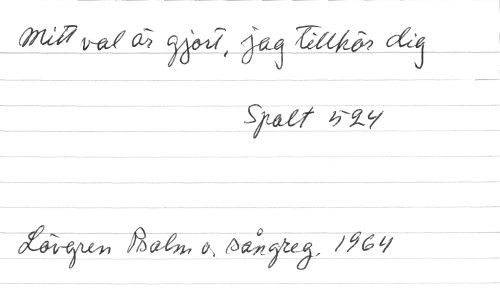 Mitt val är gjort, jag tillhör dig
Spalt 524
Lövgren Psalm o. sångreg. 1964